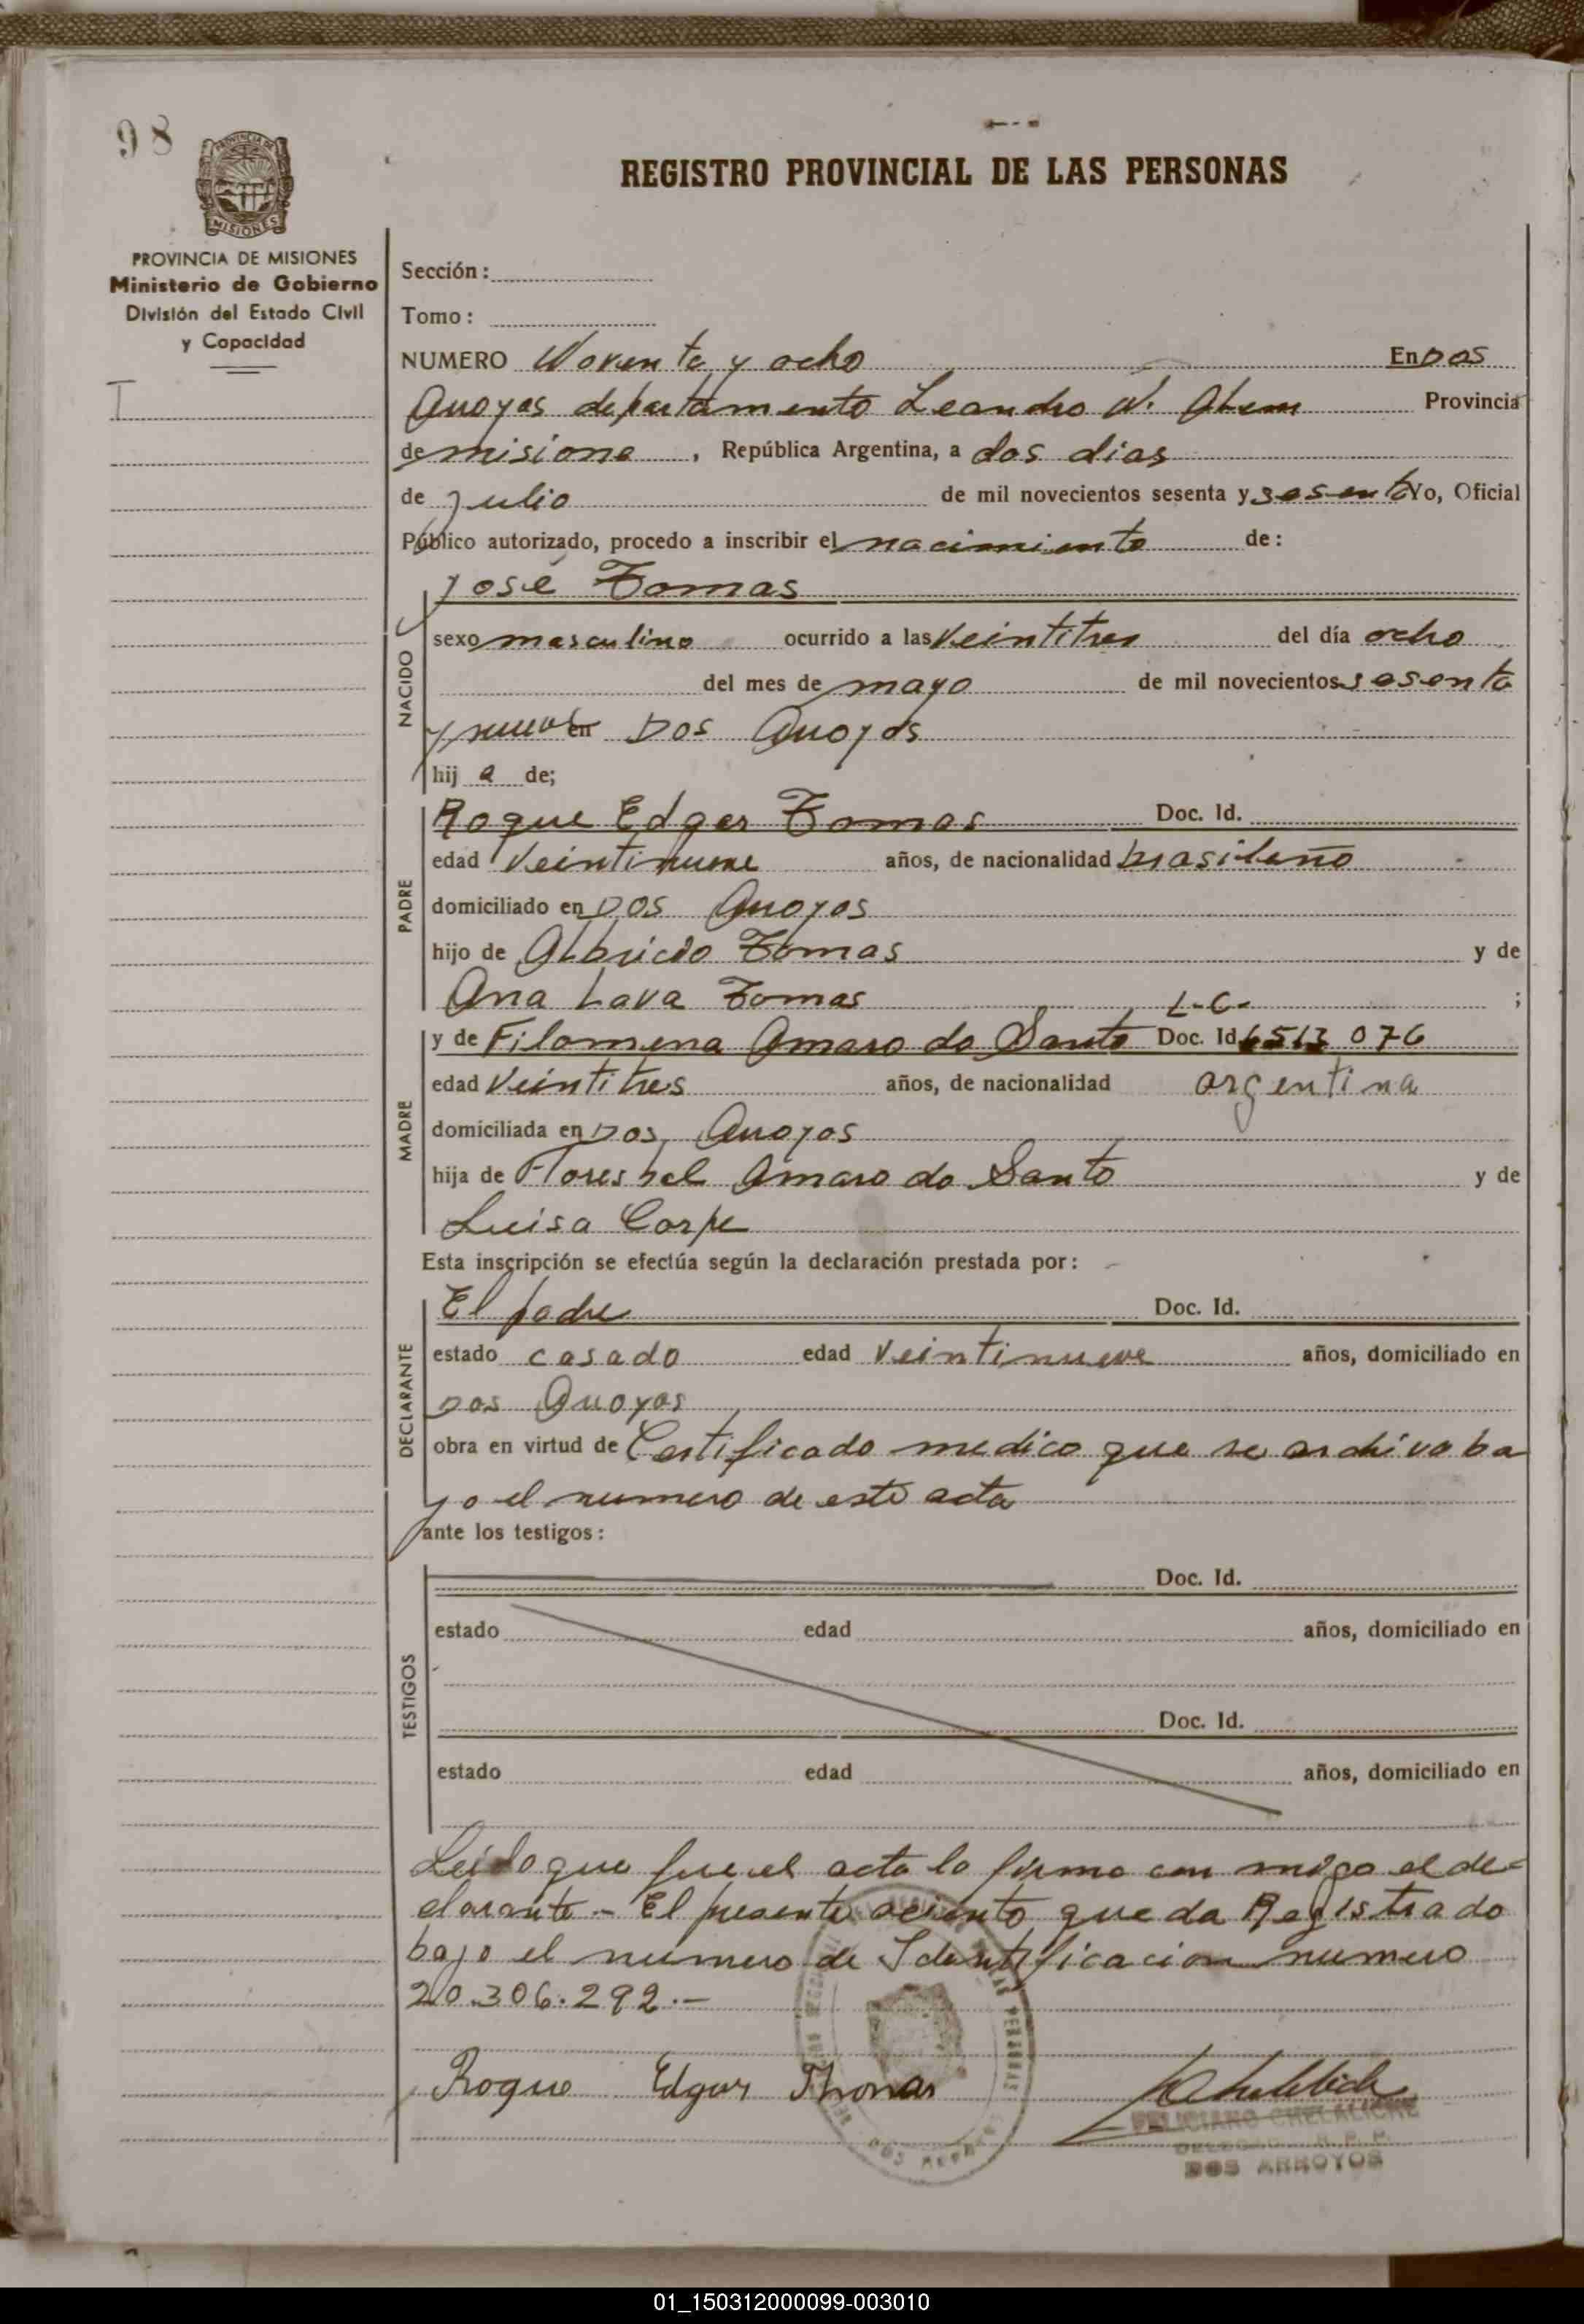 98
REGISTRO PROVINCIAL DE LAS PERSONAS
PROVINCIA DE
MISIONES
PROVINCIA DE MISIONES
Ministerio de Gobierno
División del Estado Civil
y Capacidad
Sección:
Tomo:
NUMERO Noventa y ocho En Dos
Arroyos departamento Leandro N. Alem Provincia
de misione, República Argentina, a dos dias
de Julio de mil novecientos sesenta y sesenta Yo, Oficial
Público autorizado, procedo a inscribir el nacimiento de:
José Tomas
NACIDO
sexo masculino ocurrido a las veintitres del día ocho
del mes de mayo de mil novecientos sesenta
y nueve en Dos Arroyos
hij a de;
Roque Edgar Tomas Doc. Id.
PADRE
edad Veintinueve años, de nacionalidad brasileño
domiciliado en Dos Arroyos
hijo de Albricio Tomas y de
Ana Lava Tomas L.C. ;
y de Filomena Amaro do Santo Doc. Id 6513 076
MADRE
edad Veintitres años, de nacionalidad argentina
domiciliada en Dos Arroyos
hija de Florestal Amaro do Santo y de
Luisa Corpe
Esta inscripción se efectúa según la declaración prestada por:
El padre Doc. Id.
DECLARANTE
estado casado edad Veintinueve años, domiciliado en
Dos Arroyos
obra en virtud de Certificado medico que se archiva ba
jo el numero de este acta
ante los testigos:
Doc. Id.
TESTIGOS
estado edad años, domiciliado en
Doc. Id.
estado edad años, domiciliado en
Leido que fue el acta la firma con migo el de=
clarante - El presente aciento queda Registrado
bajo el numero de Identificacion numero
20.306.292.-
Roque Edgar Thomas
FELICIANO CHELALICHE
DELEGADO R. P. P.
DOS ARROYOS
01_150312000099-003010